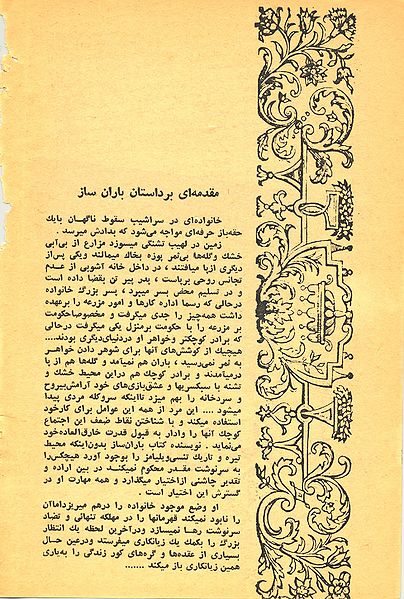 مقدمه‌ای برداستان باران ساز
خانواده‌ای در سراشیب سقوط ناگهان بایك
حقه‌باز حرفه‌ای مواجه می‌شود که بدادش میرسد .
زمین در لهیب تشنگی میسوزد مزارع از بی‌آبی
خشك وگله‌ها بی‌ثمر پوزه بخاك میمالند ویکی پس‌از
دیگری ازپا میافتند ، در داخل خانه آشوبی از عدم
تجانس روحی برپاست ، پدر پیر تن بقضا داده است
و در تسلیم محض بسر میبرد ، پسر بزرگ خانواده
درحالی که رسما اداره کارها و امور مزرعه را برعهده
داشت همه‌چیز را جدی میگرفت و مخصوصاحکومت
بر مزرعه را با حکومت برمنزل یکی میگرفت درحالی
که برادر کوچکتر وخواهر او دردنیای‌دیگری بودند....
هیچیك از کوشش‌های آنها برای شوهر دادن خواهر
به ثمر نمی‌رسید ، باران هم نمیامد و گله‌ها هم از پا
درمیامدند و برادر کوچك هم دراین محیط خشك و
تشنه با سبکسریها و عشق‌بازی‌های خود آرامش‌بیروح
و سردخانه را بهم میزد تااینکه سروکله مردی پیدا
میشود .... این مرد از همه این عوامل برای کارخود
استفاده میکند و با شناختن نقاط ضعف این اجتماع
کوچك آنها را وادار به قبول قدرت خارق‌العاده‌خود
می‌نماید . نویسنده کتاب باران‌ساز بدون‌اینکه محیط
تیره و تاریك تنسی‌ویلیامز را بوجود آورد هیچکس‌را
به سرنوشت مقدر محکوم نمیکند در بین اراده و
تقدیر چاشنی ازاختیار میگذارد و همه مهارت او در
گسترش این اختیار است .
او وضع موجود خانواده را درهم میریزداماآن
را نابود نمیکند قهرمانها را در مهلکه تنهائی و تضاد
سرنوشت رها نمیسازد ودرآخرین لحظه یك انتظار
بزرگ را بکمك یك زیانکاری میفرستد ودرعین حال
بسیاری از عقده‌ها و گره‌های کور زندگی را به‌یاری
همین زیانکاری باز میکند .......